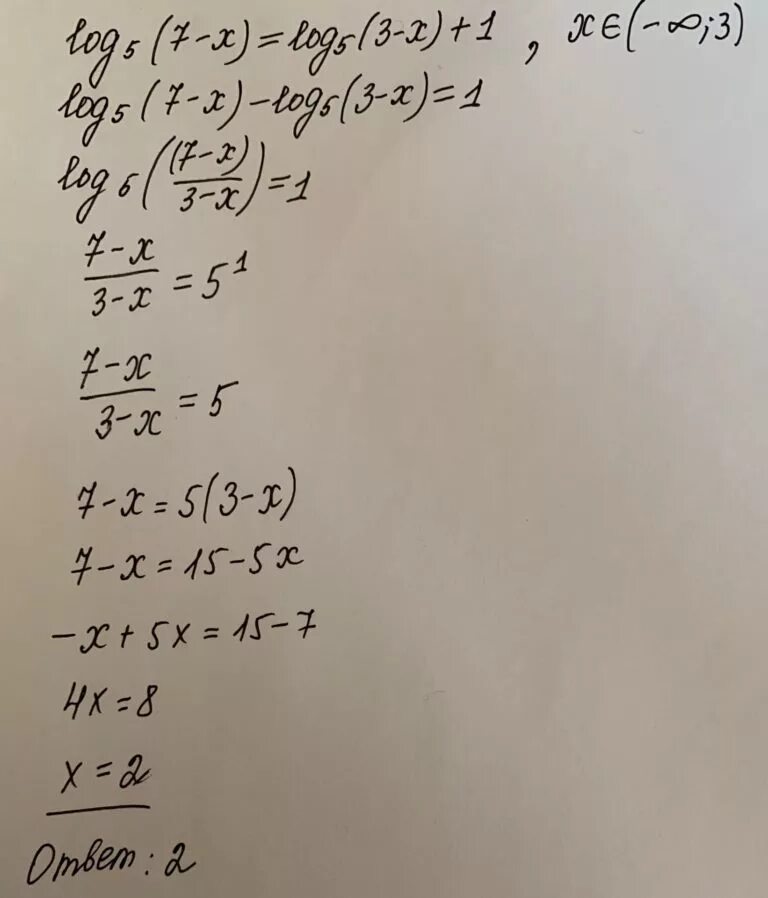 log₅(7-x)=log₅(3-x)+1 , x∈(-∞;3)
log₅(7-x)-log₅(3-x)=1
log₅((7-x)/3-x)=1
7-x/3-x = 5¹
7-x/3-x = 5
7-x=5(3-x)
7-x=15-5x
-x+5x=15-7
4x=8
x=2
Ответ: 2